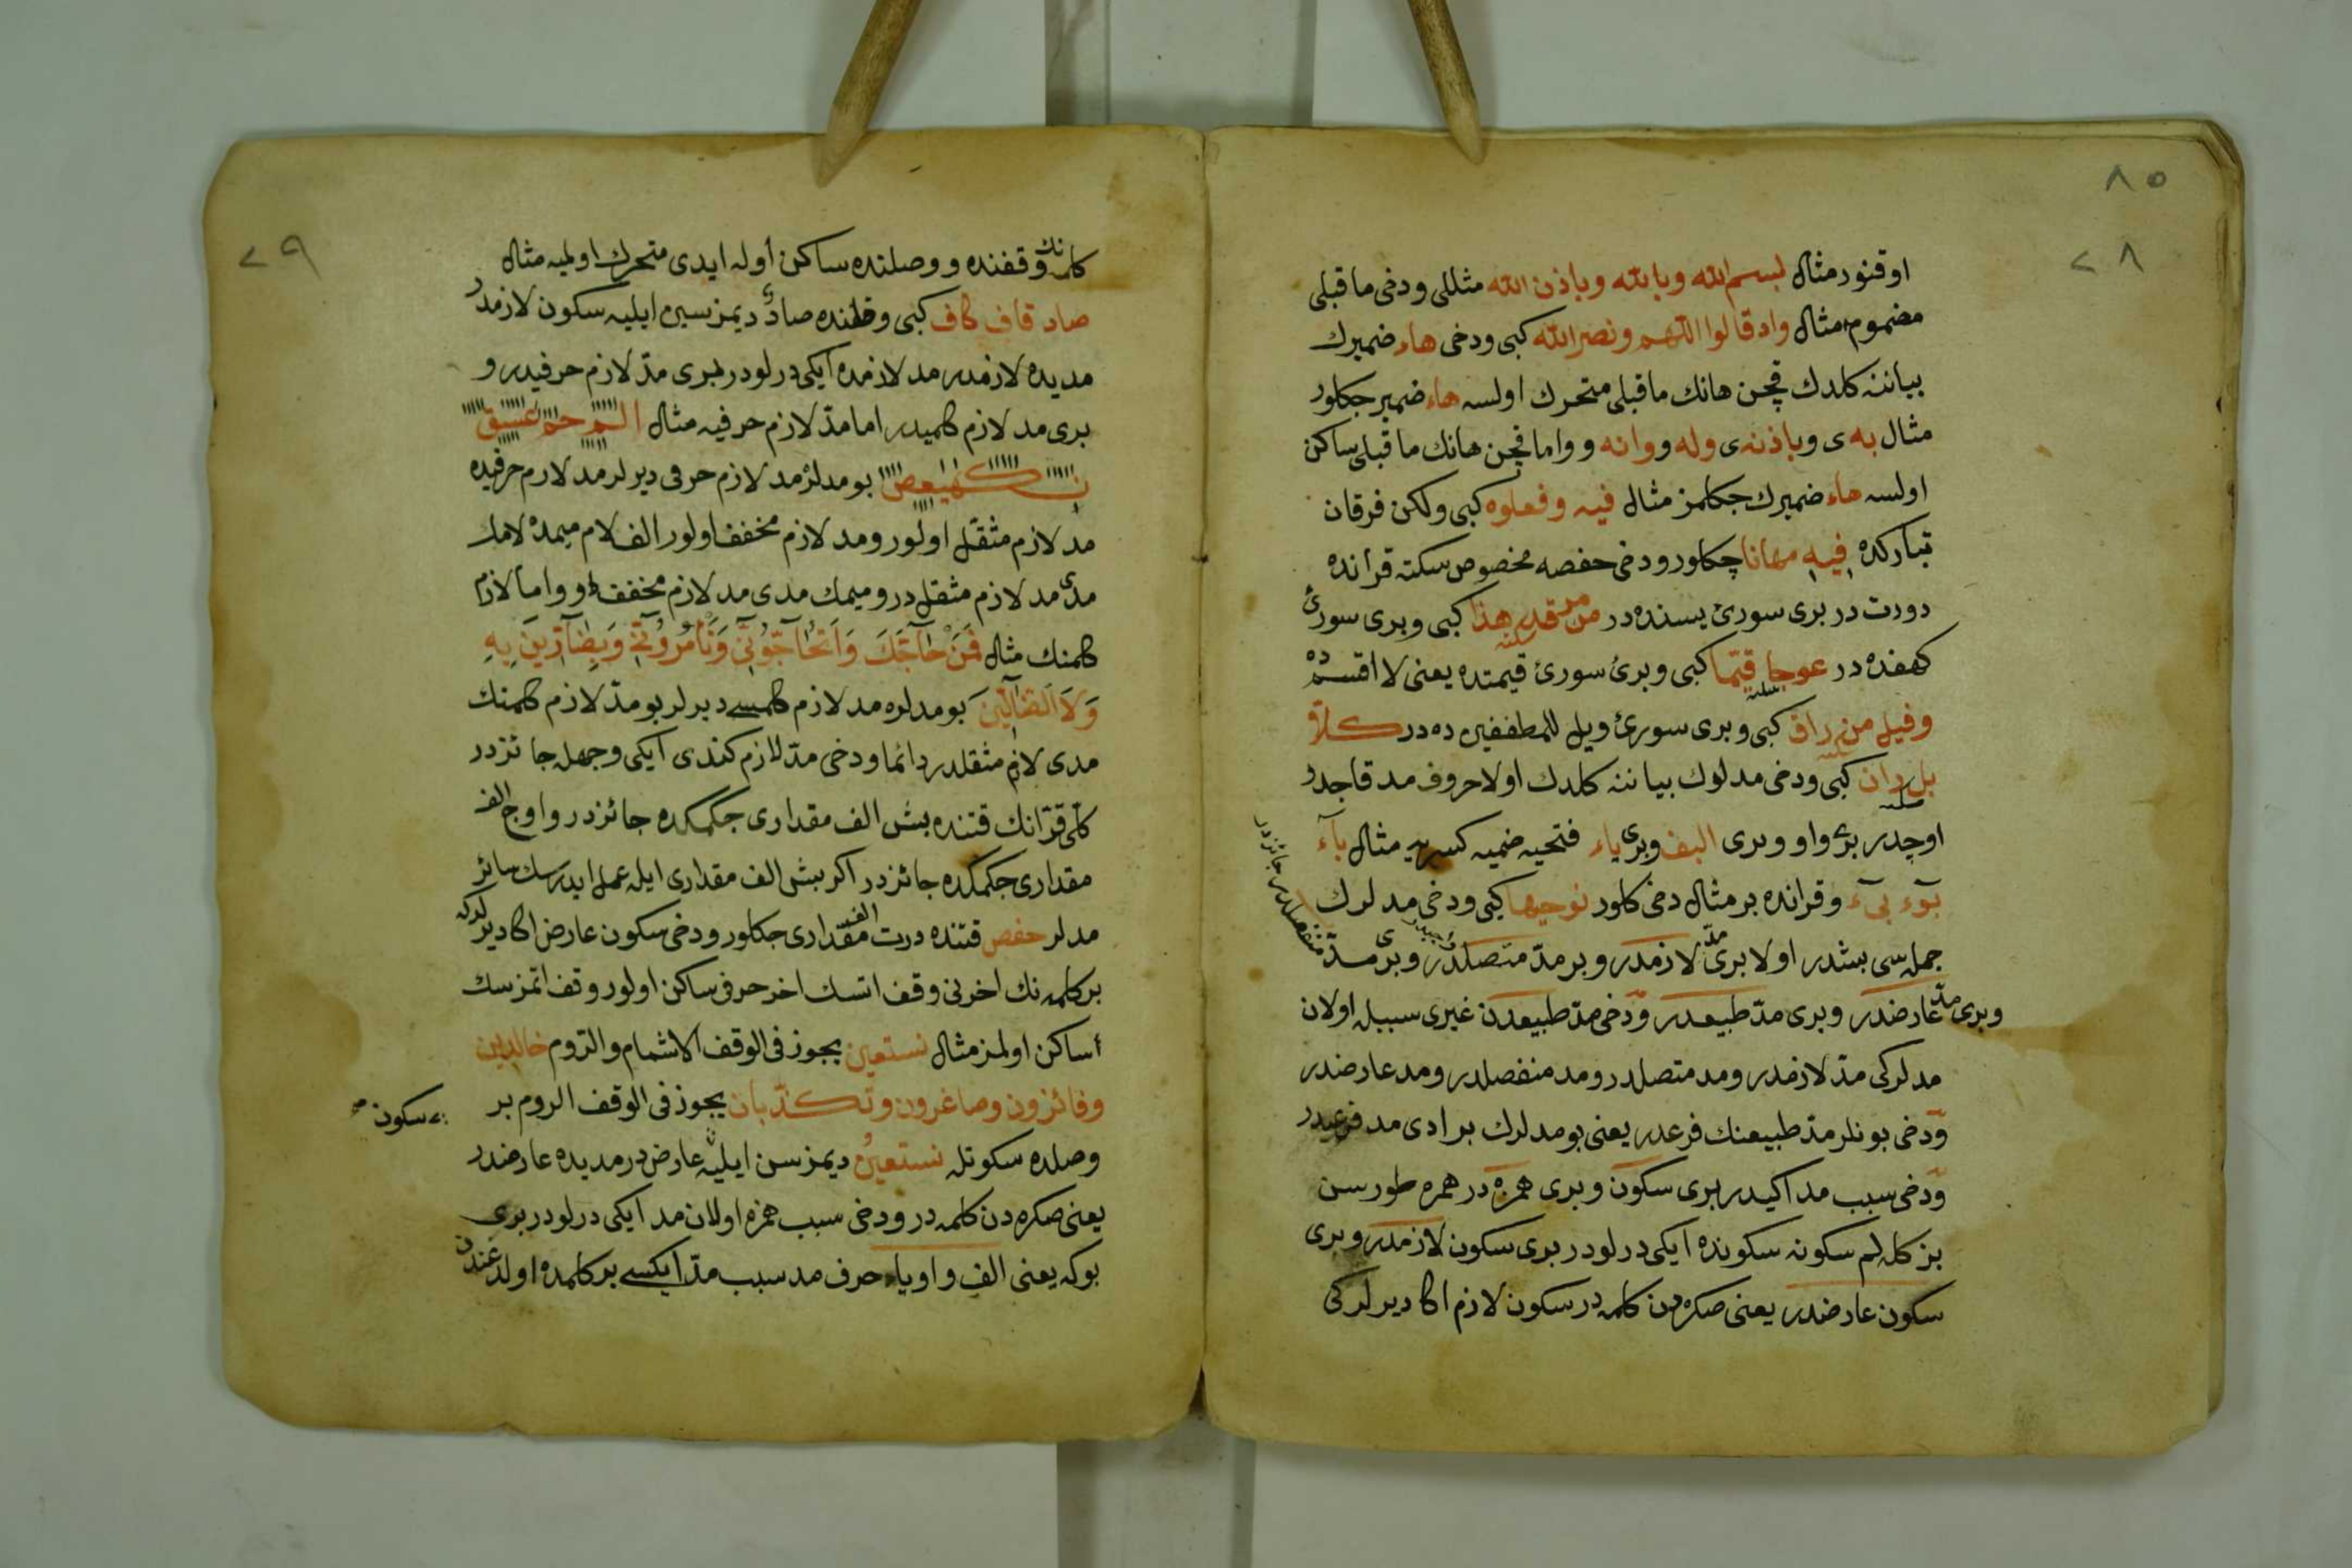 ٨٥
٧٨
اوقنور مثال بسم الله وبالله وباذن الله مثللی ودخی ما قبلی
مضموم مثال واذ قالوا اللهم ونصر الله کبی ودخی هاء ضمیرك
بیاننه کلدك قچن هانك ما قبلی متحرك اولسه هاء ضمیر جکلور
مثال به ی وباذنه ی وله و وانه و واما قچن هانك ما قبلی ساکن
اولسه هاء ضمیرك جکلمز مثال فیه وفعلوه کبی ولکن فرقان
تبارکده فیه مهانا چکلور ودخی حفصه مخصوص سکته قرانده
دورت در بری سورئ یسنده در من مرقدنا هذا کبی وبری سورئ
کهفده در عوجا قیما کبی وبرئ سورئ قیمتده یعنی لا اقسمده
وقیل من راق کبی وبری سورئ ویل للمطففین ده در کلا
بل ران کبی ودخی مدلوك بیاننه کلدك اولا حروف مد قاجدر
اوچدر برئ واو وبری الف وبری یاء فتحیه ضمیه کسریه مثال باآء
بوٓء بیٓء وقرانده بر مثال دخی کلور نوحیها کبی ودخی مدلرك
جمله سی بشدر اولا بری مدّ لازمدر وبر مدّ متصلدر وبری مدّ منفصلدر جائزدر
وبری مدّ عارضدر وبری مدّ طبیعدر ودخی مدّ طبیعدن غیری سببله اولان
مدلرکی مدّ لازمدر ومد متصلدر ومد منفصلدر ومد عارضدر
ودخی بونلر مدّ طبیعنك فرعدر یعنی بو مدلرك بر ادی مد فرعیدر
ودخی سبب مد اکیدر بری سکون وبری همزه در همره طورسن
بز کله لم سکونه سکونده ایکی درلودر بری سکون لازمدر وبری
سکون عارضدر یعنی صکره دن کلمه در سکون لازم اکا دیرلرکی
٧٩
کلمه نك وقفنده و وصلنده ساکن اوله ایدی متحرك اولمیه مثال
صاد قاف کاف کبی وقفنده صادئ دیمزسین ایلیه سکون لازمدر
مدیده لازمدر مد لازمده ایکی درلودر بری مدّ لازم حرفیدر و
بری مد لازم کلمیدر اما مدّ لازم حرفیه مثال الم حم عسق
ن کهیعص بو مدلرْ مد لازم حرفی دیرلر مد لازم حرفیده
مد لازم مثقل اولور ومد لازم مخفف اولور الف لام میمده لامك
مدی مد لازم مثقل در ومیمك مدی مد لازم مخففدر واما لازم
کلمنك مثال فَمَنْ حَآجَّكَ وَاَتُحَآجُّوٓنّی وَتَأْمُرُوٓنّی وَبِضَآرّینَ بِهِ
وَلَا الضَّآلّینَ بو مدلره مد لازم کلمسے دیرلر بو مدّ لازم کلمنك
مدی لازم مثقلدر دائما ودخی مدّ لازم کندی ایکی وجهله جائزدر
کلی قرّانك قتنده بش الف مقداری جکمکده جائزدر و اوچ الف
مقداری جکمکده جائزدر اکر بش الف مقداری ایله عمل ایدرسك سائر
مدلر حفص قتنده درت الف مقداری جکلور ودخی سکون عارض اکا دیرلرکه
بر کلمه نك اخرنی وقف اتسك اخر حرفی ساکن اولور وقف اتمزسك
ساکن اولمز مثال نستعین یجوز فی الوقف الاشمام والروم خالدین
وفائزون وصاغرون وتکذّبان یجوز فی الوقف الروم بر
سکون
وصلده سکونله نستعینُ دیمزسن ایلیه عارض در مدیده عارضدر
یعنی صکره دن کلمه در ودخی سبب همزه اولان مد ایکی درلودر بری
بوکه یعنی الف واو یاء حرف مد سبب مدّ ایکسے بر کلمده اولدغندن